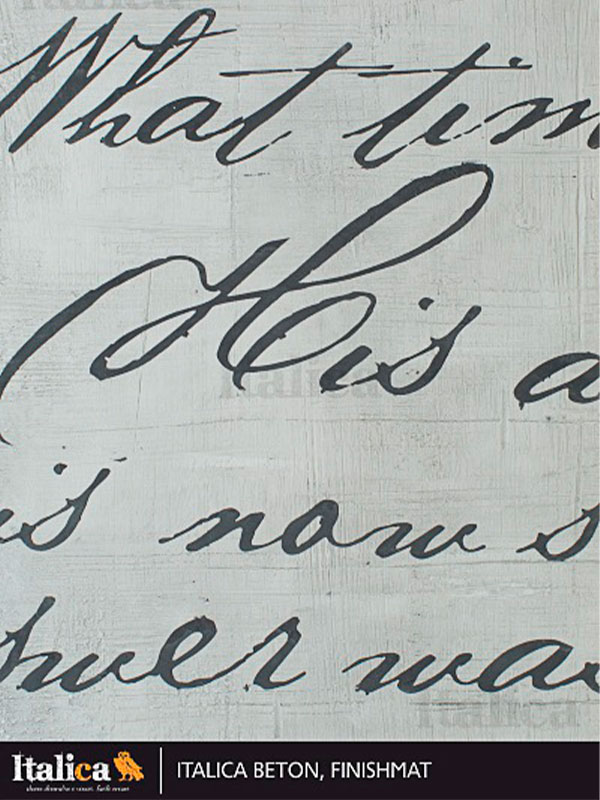 Italica
What tim
His a
Italica
is now s
swer wa
Italica
Italica
ITALICA BETON, FINISHMAT